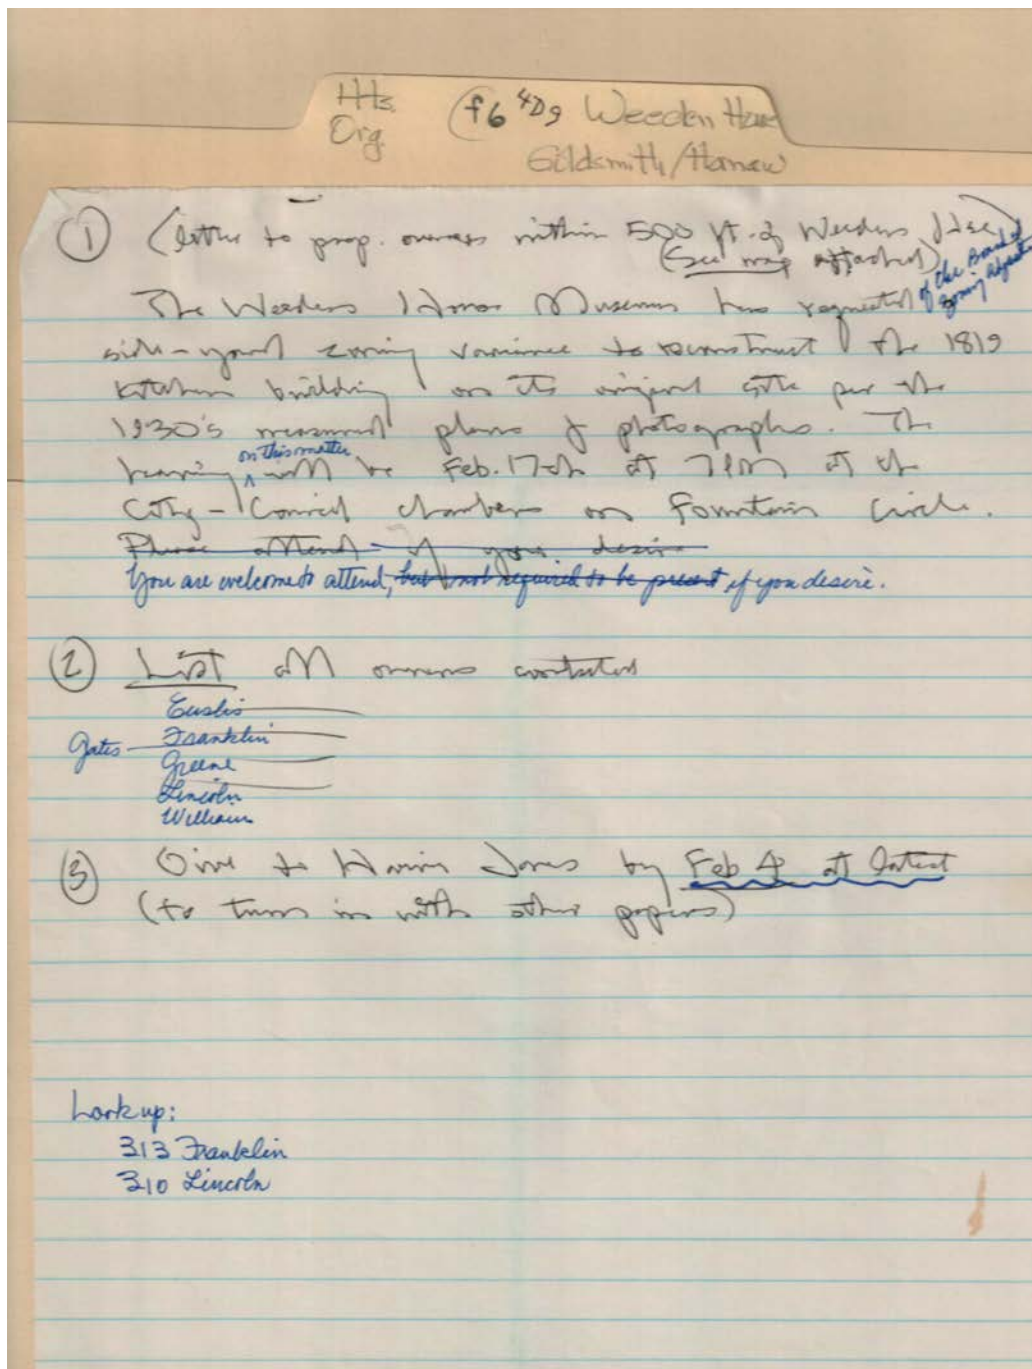 HHs. (f6 4D9 Weeden House
Org.
Goldsmith/Harnew
① (letter to prop. owners within 500 ft. of Weeden Hse.)
(See map attached)
of the Board of
Zoning Adjustment
The Weeden House Museum has requested
side-yard zoning variance to reconstruct the 1819
kitchen building on its original site per the
1930's measured plans & photographs. The
on this matter
hearing ^ will be Feb. 17th at 7 PM at the
City-Council chambers on Fountain Circle.
Please attend if you desire
You are welcome to attend, but not required to be present if you desire.
② List all owners contacted
Eustis
Gates - Franklin
Greene
Lincoln
William
③ Give to Harvie Jones by Feb 4 at latest
(to turn in with other papers)
Look up:
313 Franklin
310 Lincoln